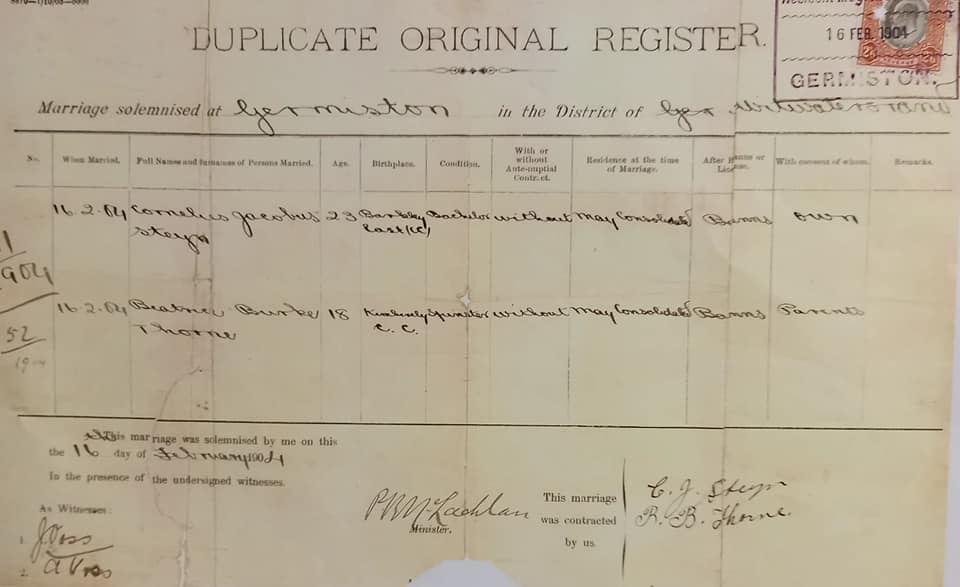 DUPLICATE ORIGINAL REGISTER.
16 FEB. 1904
GERMISTON.
Marriage solemnised at Germiston in the District of Witwatersrand
No. When Married. Full Names and Surnames of Persons Married. Age. Birthplace. Condition. With or without Ante-nuptial Contract. Residence at the time of Marriage. After Banns or License. With consent of whom. Remarks.
16.2.04 Cornelius Jacobus 23 Barkley Bachelor without May Consolidated Banns own
Steyn East (CC)
1904
16.2.04 Beatrice Burke 18 Kimberly Spinster without May Consolidated Banns Parents
Thorne C. C.
52
1904
This marriage was solemnised by me on this
the 16 day of February 1904
In the presence of the undersigned witnesses.
As Witnesses:
1 J Voss
2 A Voss
Minister.
This marriage
was contracted
by us
C. J. Steyn
B. B. Thorne.